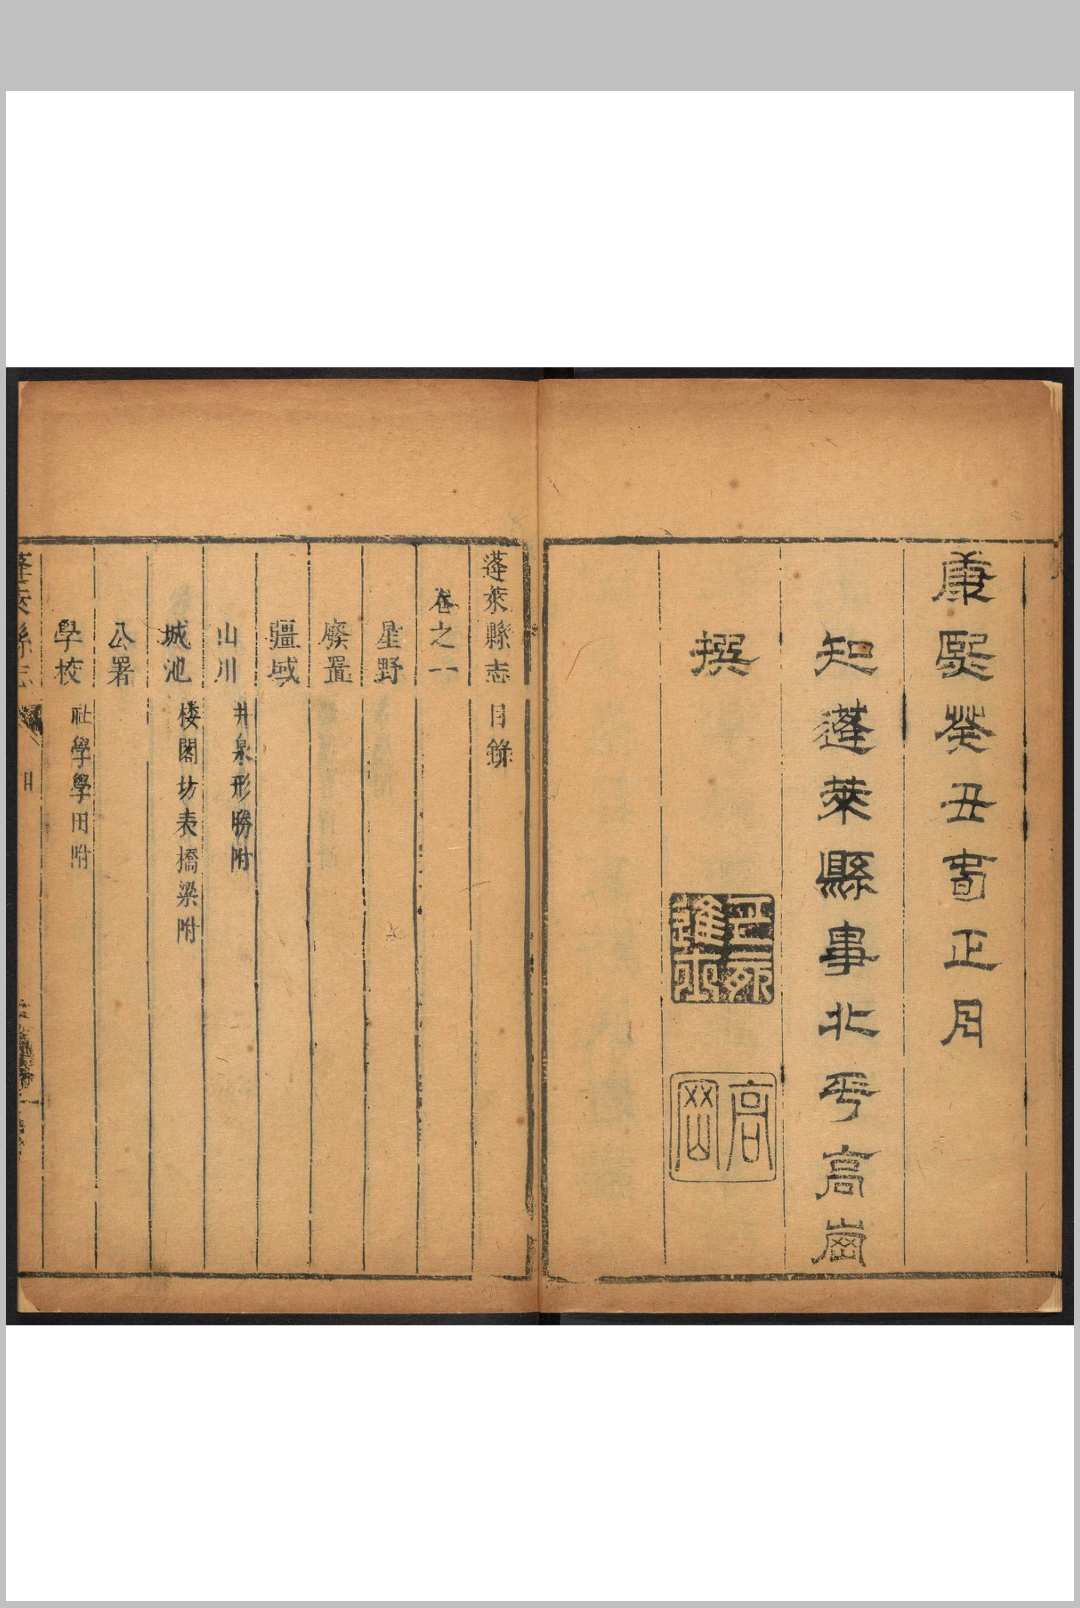 康熙癸丑春正月
知蓬萊縣事北平高崗
撰
高崗
蓬萊縣志目錄
卷之一
星野
廢置
疆域
山川 井泉形勝附
城池 楼閣坊表橋梁附
公署
學校 社學學田附
蓬萊縣志
目